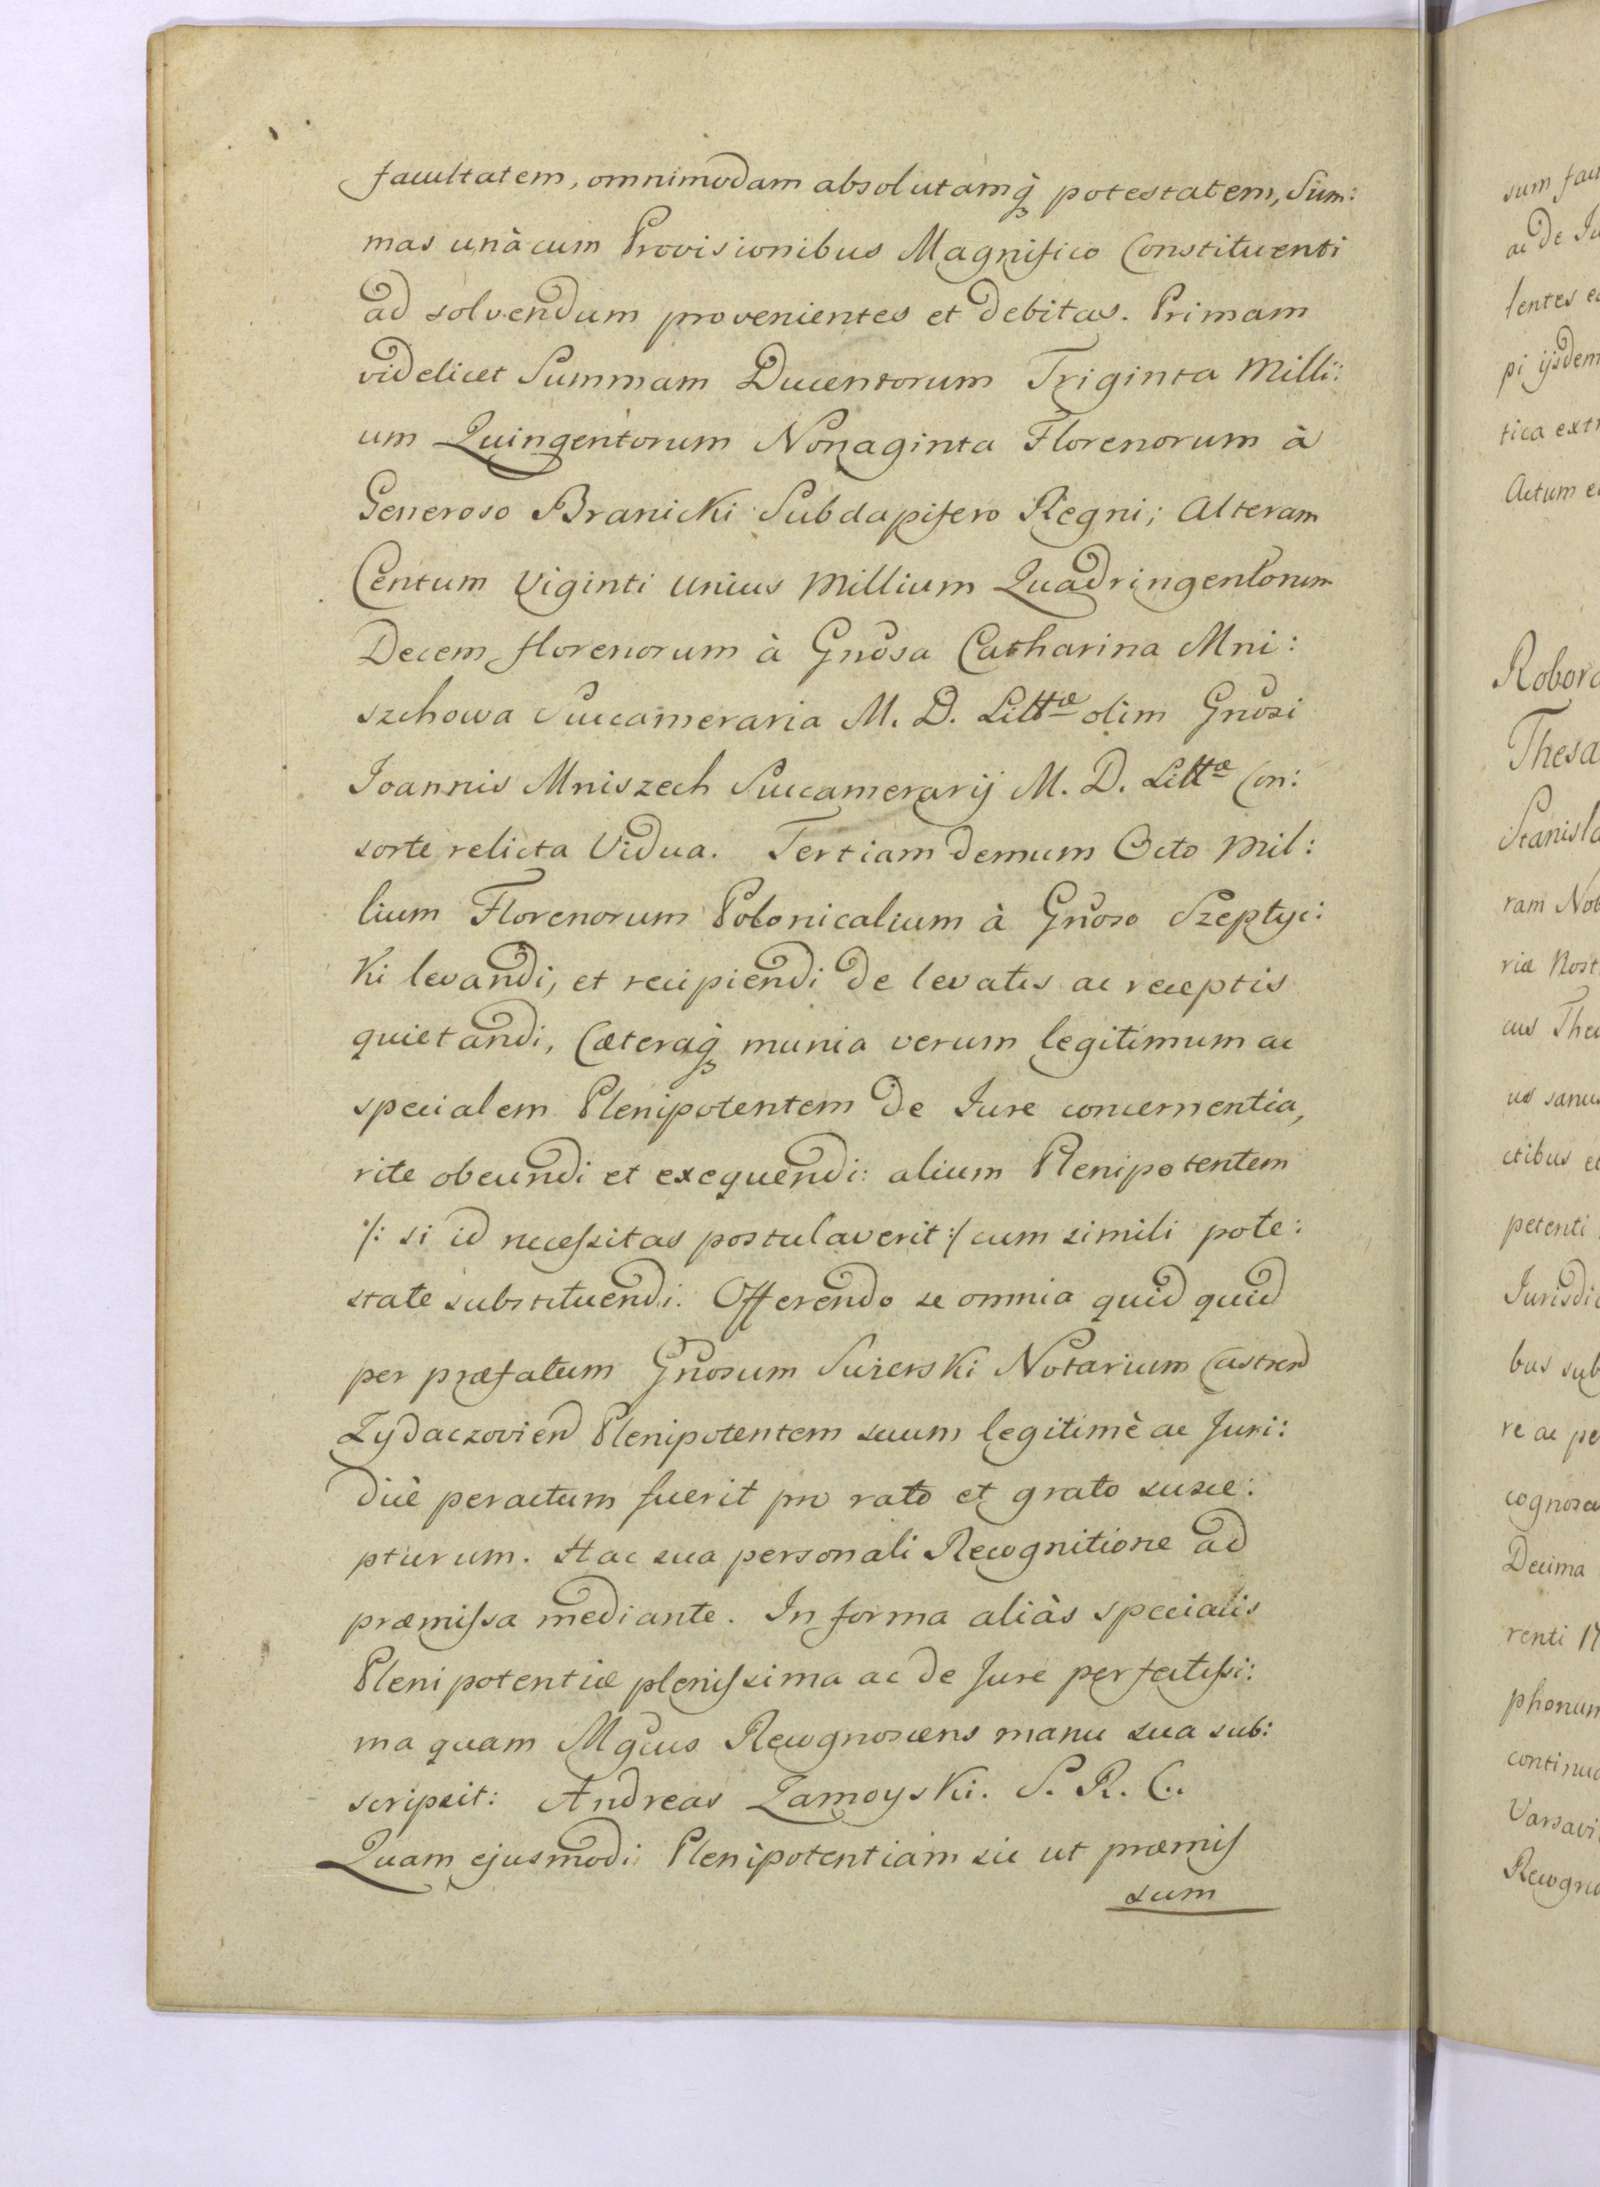 facultatem, omnimodam absolutamq̀ potestatem, Sum:
mas unà cum Provisionibus Magnifico Constituenti
ad solvendum provenientes et debitas. Primam
videlicet Summam Ducentorum Triginta Milli:
um Quingentorum Nonaginta Florenorum à
Generoso Branicki Subdapifero Regni; Alteram
Centum Viginti Unius Millium Quadringentorum
Decem florenorum à Gnosa Catharina Mni:
szchowa Succameraria M. D. Littæ olim Gnosi
Joannis Mniszech Succamerarij M. D. Littæ Con:
sorte relicta Vidua. Tertiam demum Octo Mil:
lium Florenorum Polonicalium à Gnoso Szeptyc:
ki levandi, et recipiendi de levatis ac receptis
quietandi, Cæteraq̀ munia verum legitimum ac
specialem Plenipotentem de Jure concernentia,
rite obeundi et exequendi: alium Plenipotentem
/: si id necessitas postulaverit :/ cum simili pote:
state substituendi. Offerendo se omnia quid quid
per præfatum Gnosum Suzerski Notarium Castren
Zydaczovien Plenipotentem suum legitimè ac Juri:
dicè peractum fuerit pro rato et grato susce:
pturum. Hac sua personali Recognitione ad
præmissa mediante. In forma aliàs specialis
Plenipotentiæ plenissima ac de Jure perfectissi:
ma quam Mgcus Recognoscens manu sua sub:
scripsit: Andreas Zamoyski. S. R. C.
Quam ejusmodi Plenipotentiam sic ut præmis
sum
sum
ac de
lentes
pi ijsdem
tica
Actum
Stanisl
ram
riæ
petenti
bus
re ac
Decima
renti